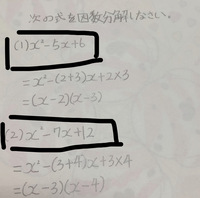 次の式を因数分解しなさい。
(1) x²-5x+6
= x²-(2+3)x+2×3
= (x-2)(x-3)
(2) x²-7x+12
= x²-(3+4)x+3×4
= (x-3)(x-4)